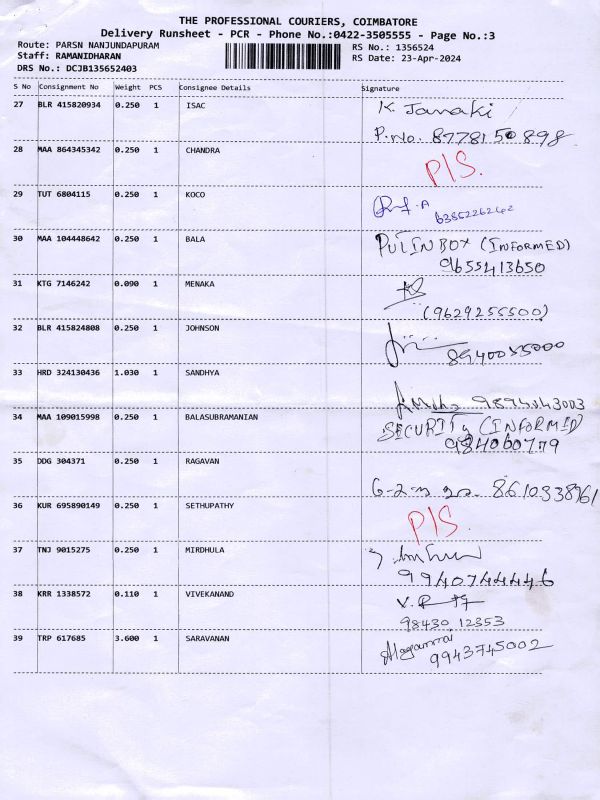 THE PROFESSIONAL COURIERS, COIMBATORE
Delivery Runsheet - PCR - Phone No.:0422-3505555 - Page No.:3
Route: PARSN NANJUNDAPURAM
RS No.: 1356524
Staff: RAMANIDHARAN
RS Date: 23-Apr-2024
DRS No.: DCJB135652403
S No Consignment No Weight PCS Consignee Details Signature
27 BLR 415820934 0.250 1 ISAC K. Janaki
P.No. 8778150898
28 MAA 864345342 0.250 1 CHANDRA P/S.
29 TUT 6804115 0.250 1 KOCO
6385226262
30 MAA 104448642 0.250 1 BALA PUT IN BOX (INFORMED)
9655413650
31 KTG 7146242 0.090 1 MENAKA
(9629255500)
32 BLR 415824808 0.250 1 JOHNSON
8940055000
33 HRD 324130436 1.030 1 SANDHYA
9894043003
34 MAA 109015998 0.250 1 BALASUBRAMANIAN SECURITY (INFORMED)
35 DDG 304371 0.250 1 RAGAVAN
8610338961
36 KUR 695890149 0.250 1 SETHUPATHY P/S.
37 TNJ 9015275 0.250 1 MIRDHULA
9940744446
38 KRR 1338572 0.110 1 VIVEKANAND
98430 12353
39 TRP 617685 3.600 1 SARAVANAN
9943745002